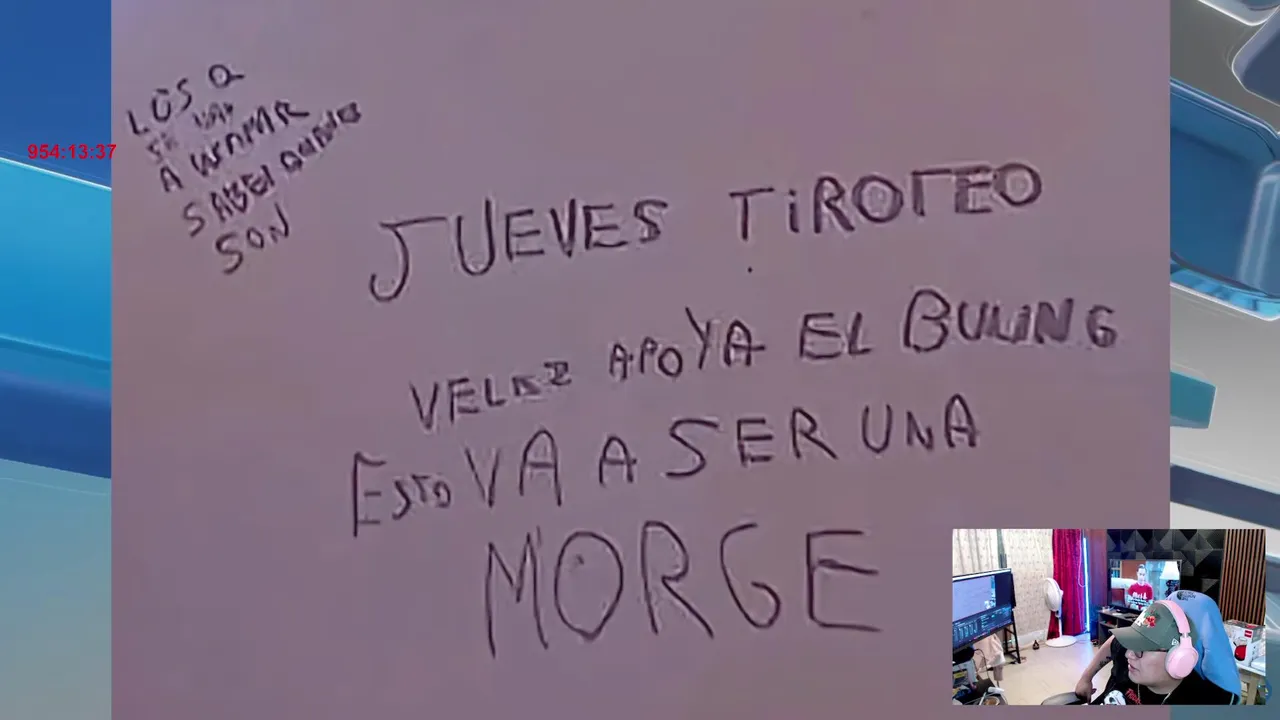 LOS Q
SE VAN
A WAPIAR
SABEI QUIENES
SON
954:13:37
JUEVES TIROTEO
VELEZ APOYA EL BULING
ESTO VA A SER UNA
MORGE